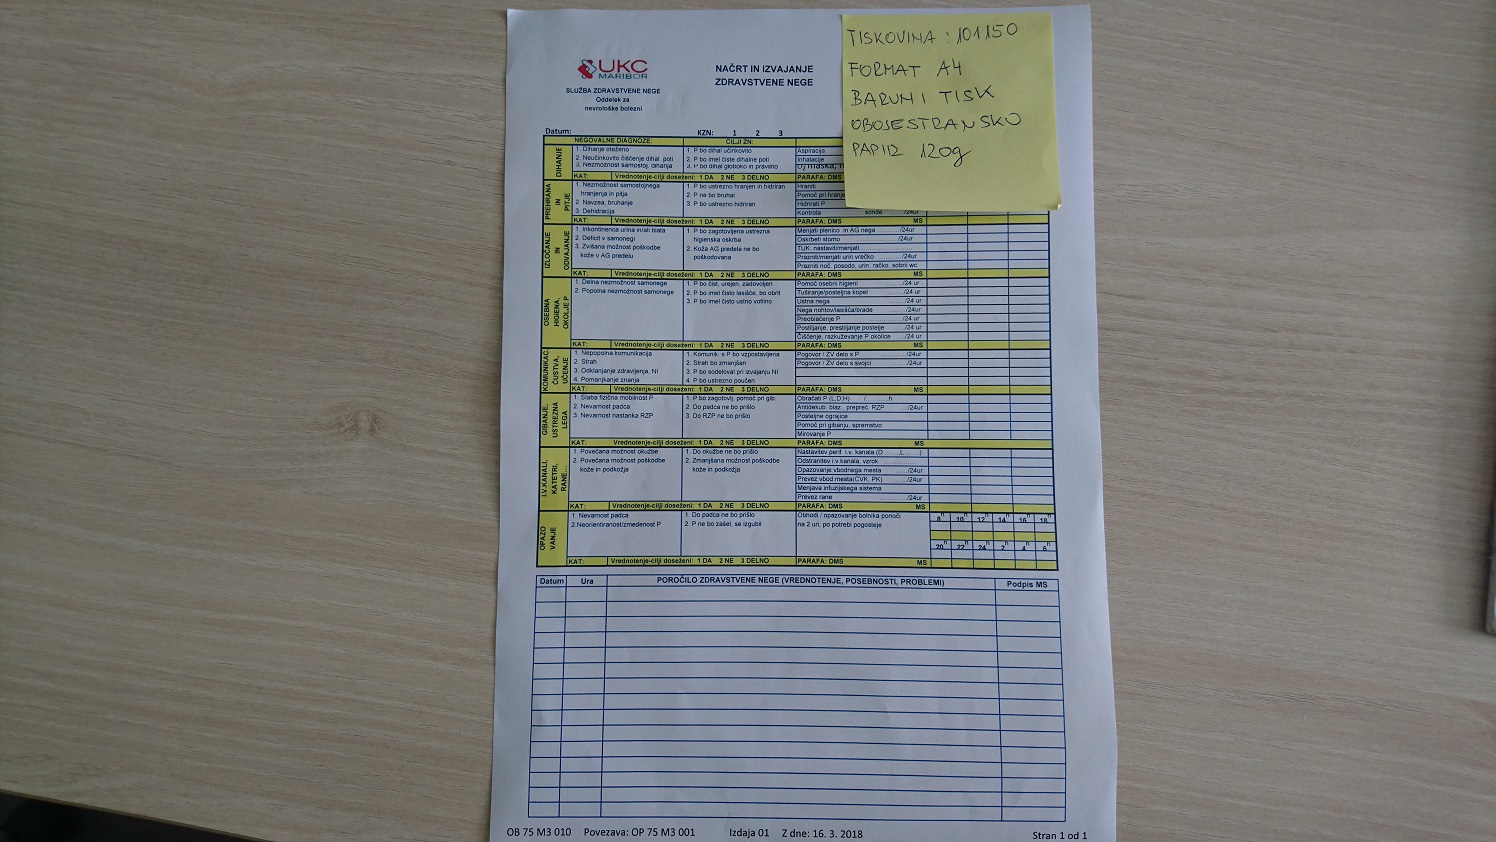 TISKOVINA : 101150
FORMAT A4
BARVNI TISK
OBOJESTRANSKO
PAPIR 120g
UKC
MARIBOR
SLUŽBA ZDRAVSTVENE NEGE
Oddelek za
nevrološke bolezni
NAČRT IN IZVAJANJE
ZDRAVSTVENE NEGE
Datum: KZN: 1 2 3
NEGOVALNE DIAGNOZE: CILJI ZN:
DIHANJE
1. Dihanje oteženo
2. Neučinkovito čiščenje dihal. poti
3. Nezmožnost samostoj. dihanja
1. P bo dihal učinkovito
2. P bo imel čiste dihalne poti
3. P bo dihal globoko in pravilno
Aspiracija
Inhalacije
O₂ maska,
KAT: Vrednotenje-cilji doseženi: 1 DA 2 NE 3 DELNO PARAFA: DMS
PREHRANA IN PITJE
1. Nezmožnost samostojnega
hranjenja in pitja
2. Navzea, bruhanje
3. Dehidracija
1. P bo ustrezno hranjen in hidriran
2. P ne bo bruhal
3. P bo ustrezno hidriran
Hraniti
Pomoč pri hranje
Hidrirati P
Kontrola sonde /24ur
KAT: Vrednotenje-cilji doseženi: 1 DA 2 NE 3 DELNO PARAFA: DMS MS
IZLOČANJE IN ODVAJANJE
1. Inkontinenca urina in/ali blata
2. Deficit v samonegi
3. Zvišana možnost poškodbe
kože v AG predelu
1. P bo zagotovljena ustrezna
higienska oskrba
2. Koža AG predela ne bo
poškodovana
Menjati plenico in AG nega ........../24ur
Oskrbeti stomo ........../24ur
TUK: nastaviti/menjati
Prazniti/menjati urin.vrečko ........../24ur
Prazniti noč. posodo, urin. račko, sobni wc
KAT: Vrednotenje-cilji doseženi: 1 DA 2 NE 3 DELNO PARAFA: DMS MS
OSEBNA HIGIENA, OKOLJE P
1. Delna nezmožnost samonege
2. Popolna nezmožnost samonege
1. P bo čist, urejen, zadovoljen
2. P bo imel čisto lasišče, bo obrit
3. P bo imel čisto ustno votlino
Pomoč osebni higieni ........../24 ur
Tuširanje/posteljna kopel ........../24 ur
Ustna nega ........../24 ur
Nega nohtov/lasišča/brade ........../24ur
Preoblačenje P ........../24 ur
Postiljanje, prestiljanje postelje ........../24 ur
Čiščenje, razkuževanje P okolice ........../24 ur
KAT: Vrednotenje-cilji doseženi: 1 DA 2 NE 3 DELNO PARAFA: DMS MS
KOMUNIKAC. ČUSTVA, UČENJE
1. Nepopolna komunikacija
2. Strah
3. Odklanjanje zdravljenja, NI
4. Pomanjkanje znanja
1. Komunik. s P bo vzpostavljena
2. Strah bo zmanjšan
3. P bo sodeloval pri izvajanju NI
4. P bo ustrezno poučen
Pogovor / ZV delo s P ........../24ur
Pogovor / ZV delo s svojci ........../24ur
KAT: Vrednotenje-cilji doseženi: 1 DA 2 NE 3 DELNO PARAFA: DMS MS
GIBANJE, USTREZNA LEGA
1. Slaba fizična mobilnost P
2. Nevarnost padca
3. Nevarnost nastanka RZP
1. P bo zagotovlj. pomoč pri gib.
2. Do padca ne bo prišlo
3. Do RZP ne bo prišlo
Obračati P (L,D,H) /..........h
Antidekub. blaz., prepreč. RZP ........../24ur
Posteljne ograjice
Pomoč pri gibanju, spremstvo
Mirovanje P
KAT: Vrednotenje-cilji doseženi: 1 DA 2 NE 3 DELNO PARAFA: DMS MS
I.V.KANALI, KATETRI, RANE...
1. Povečana možnost okužbe
2. Povečana možnost poškodbe
kože in podkožja
1. Do okužbe ne bo prišlo
2. Zmanjšana možnost poškodbe
kože in podkožja
Nastavitev perif. i.v. kanala (D........,L........)
Odstranitev i.v.kanala, vzrok
Opazovanje vbodnega mesta ........../24ur
Prevez vbod.mesta(CVK, PK) ........../24ur
Menjava infuzijskega sistema
Prevez rane ........../24ur
KAT: Vrednotenje-cilji doseženi: 1 DA 2 NE 3 DELNO PARAFA: DMS MS
OPAZOVANJE
1. Nevarnost padca
2.Neorientiranost/zmedenost P
1. Do padca ne bo prišlo
2. P ne bo zašel, se izgubil
Obhodi / opazovanje bolnika ponoči
na 2 uri, po potrebi pogosteje
8h 10h 12h 14h 16h 18h
20h 22h 24h 2h 4h 6h
KAT: Vrednotenje-cilji doseženi: 1 DA 2 NE 3 DELNO PARAFA: DMS MS
Datum Ura POROČILO ZDRAVSTVENE NEGE (VREDNOTENJE, POSEBNOSTI, PROBLEMI) Podpis MS
OB 75 M3 010 Povezava: OP 75 M3 001 Izdaja 01 Z dne: 16. 3. 2018 Stran 1 od 1